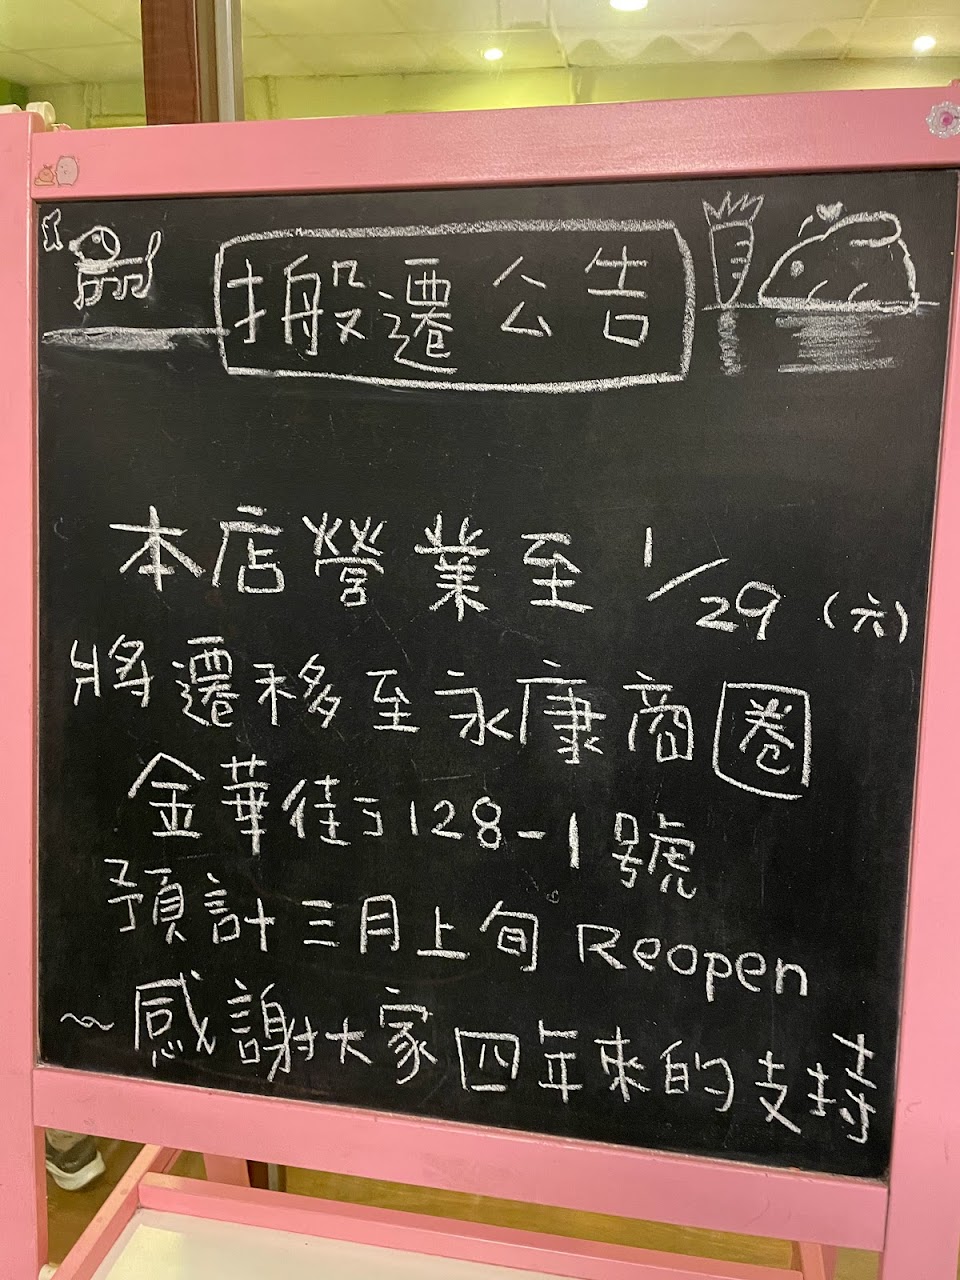 搬遷公告
本店營業至 1/29 (六)
將遷移至永康商圈
金華街128-1號
預計三月上旬 Reopen
~感謝大家四年來的支持